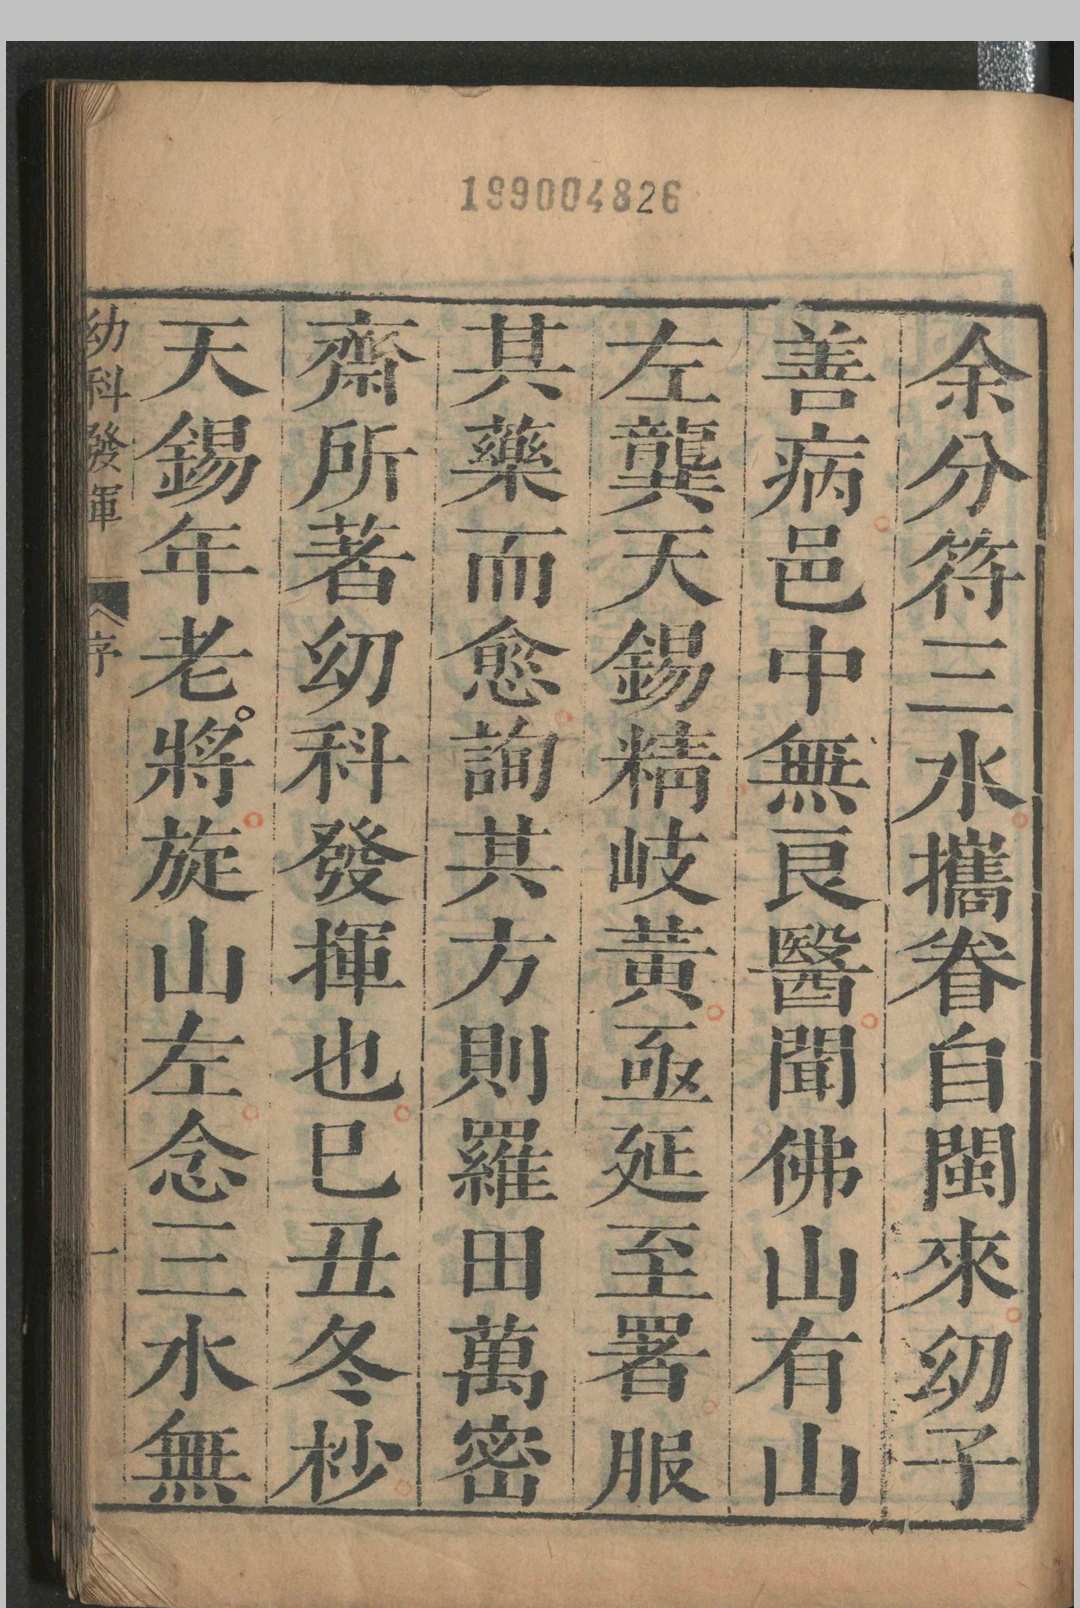 199004826
余分符三水攜眷自閩來幼子
善病邑中無良醫聞佛山有山
左龔天錫精岐黃亟延至署服
其藥而愈詢其方則羅田萬密
齋所著幼科發揮也巳丑冬杪
天錫年老將旋山左念三水無
幼科發揮 序 一